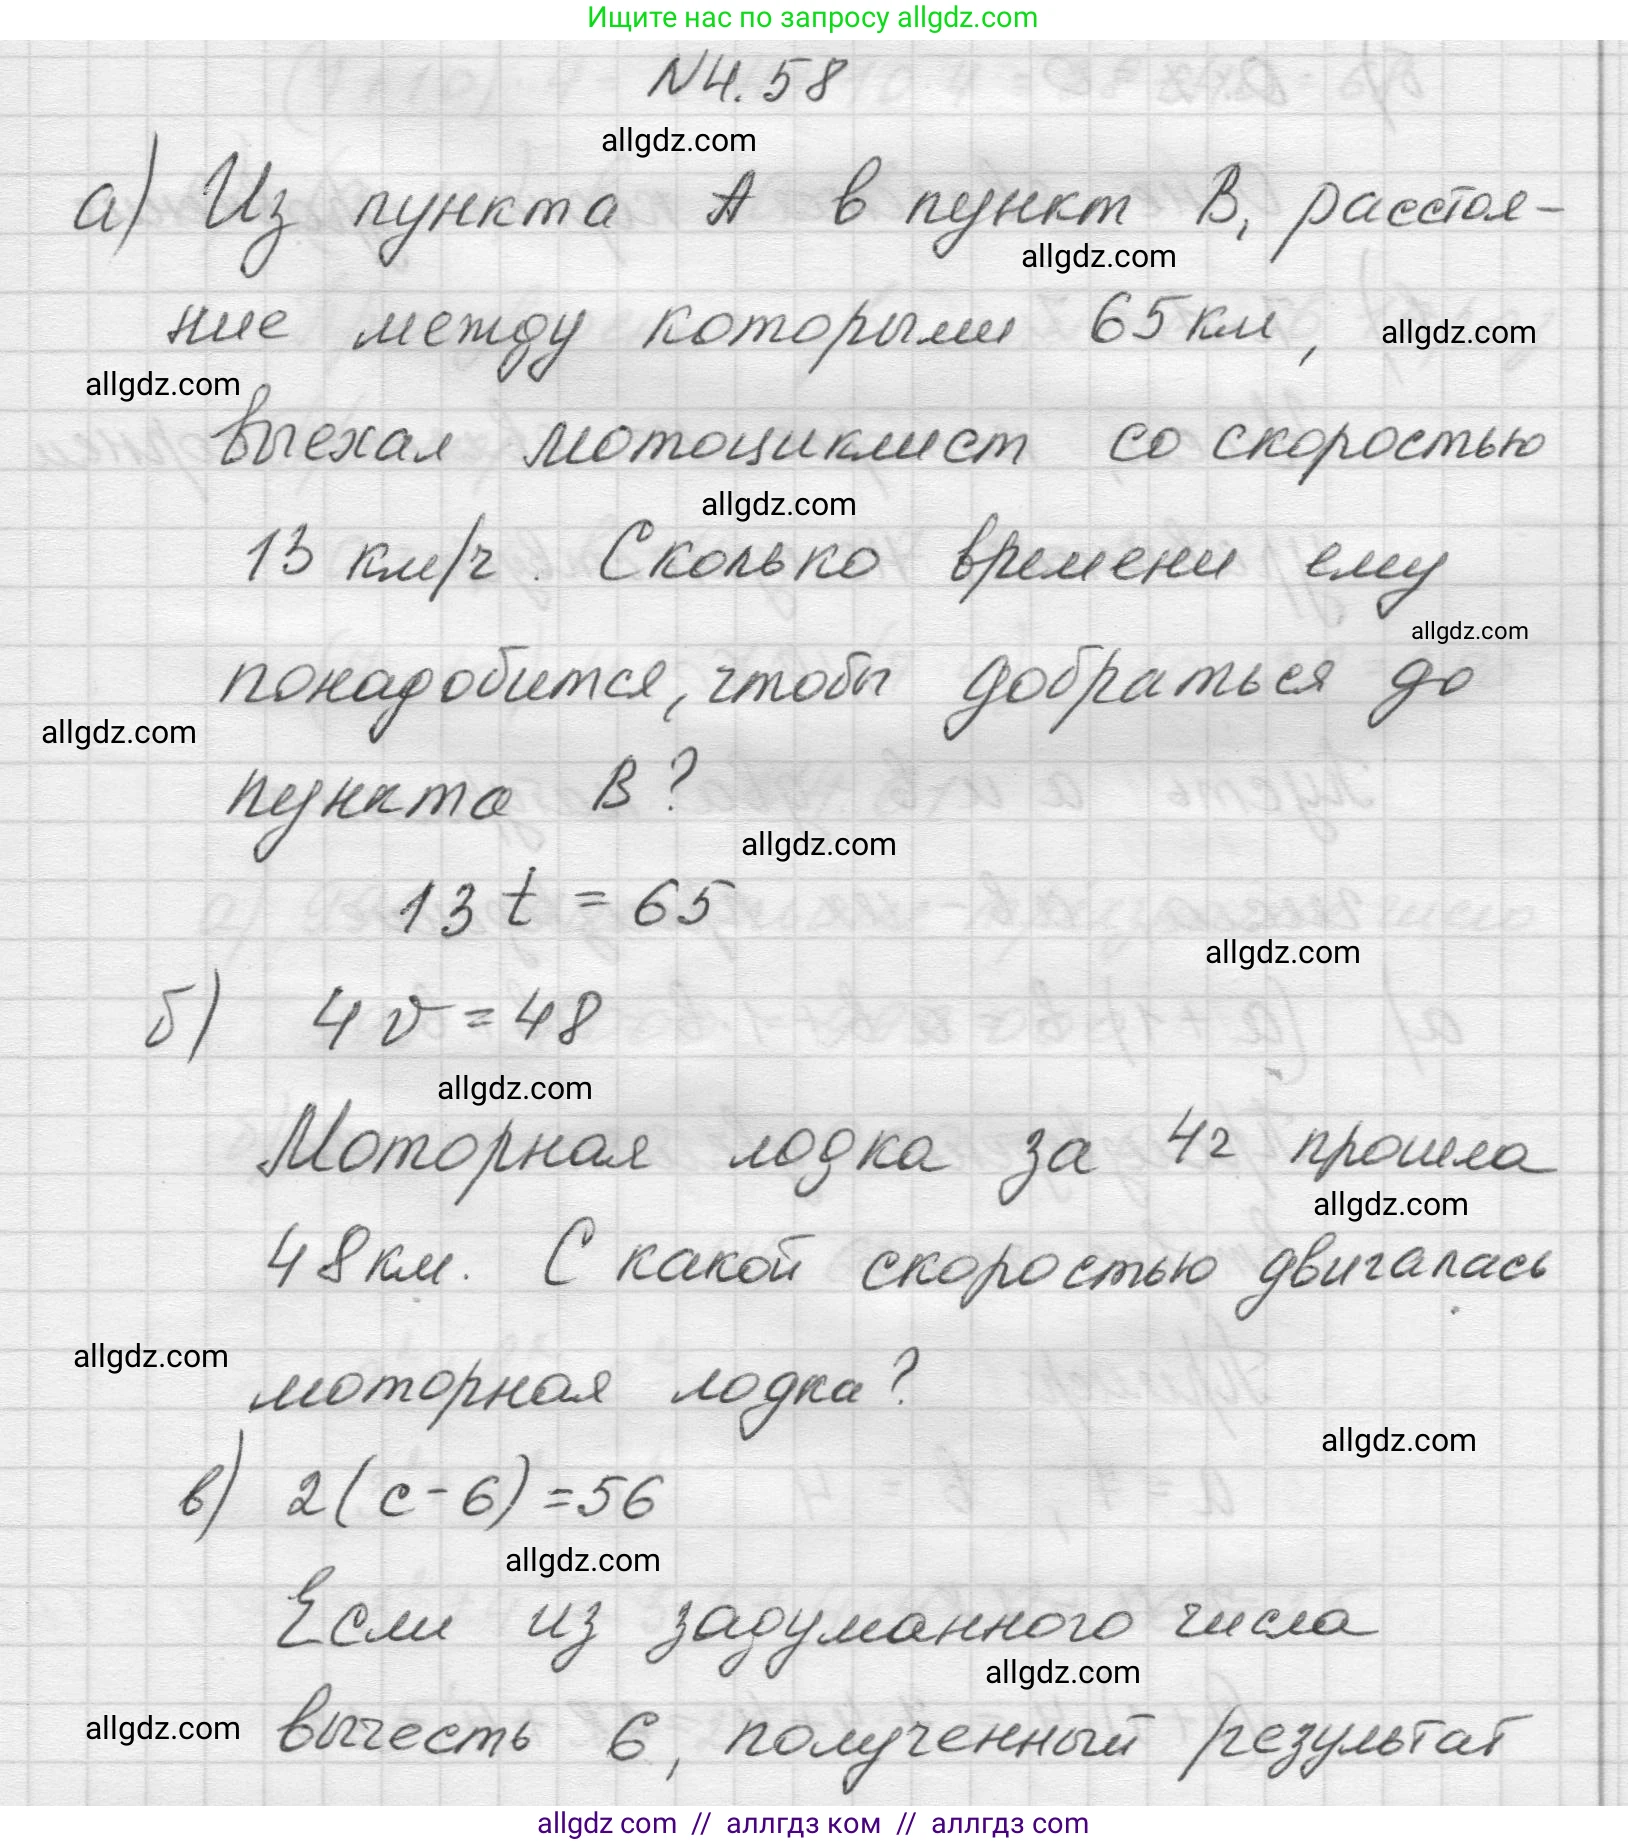 Ищите нас по запросу allgdz.com
N4.58
allgdz.com
а) Из пункта А в пункт В, расстоя-
allgdz.com
ние между которыми 65 км,
allgdz.com
allgdz.com
выехал мотоциклист со скоростью
allgdz.com
13 км/ч. Сколько времени ему
allgdz.com
понадобится, чтобы добраться до
allgdz.com
пункта В?
allgdz.com
13 t = 65
allgdz.com
б) 4 v = 48
allgdz.com
Моторная лодка за 4ч прошла
allgdz.com
48 км. С какой скоростью двигалась
allgdz.com
моторная лодка?
allgdz.com
в) 2(c-6)=56
allgdz.com
Если из задуманного числа
allgdz.com
allgdz.com
вычесть 6, полученный результат
allgdz.com // аллгдз ком // аллгдз.com